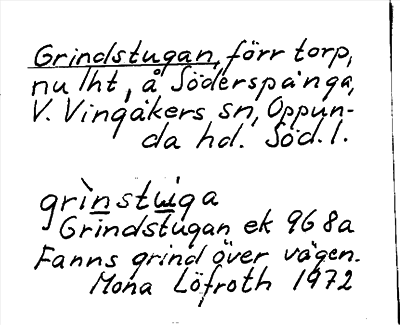 Grindstugan, förr torp,
nu lht, å Söderspånga,
V. Vingåkers sn, Oppun-
da hd. Söd. l.
grìnstu̇́iga
Grindstugan ek 96 8a
Fanns grind över vägen.
Mona Löfroth 1972